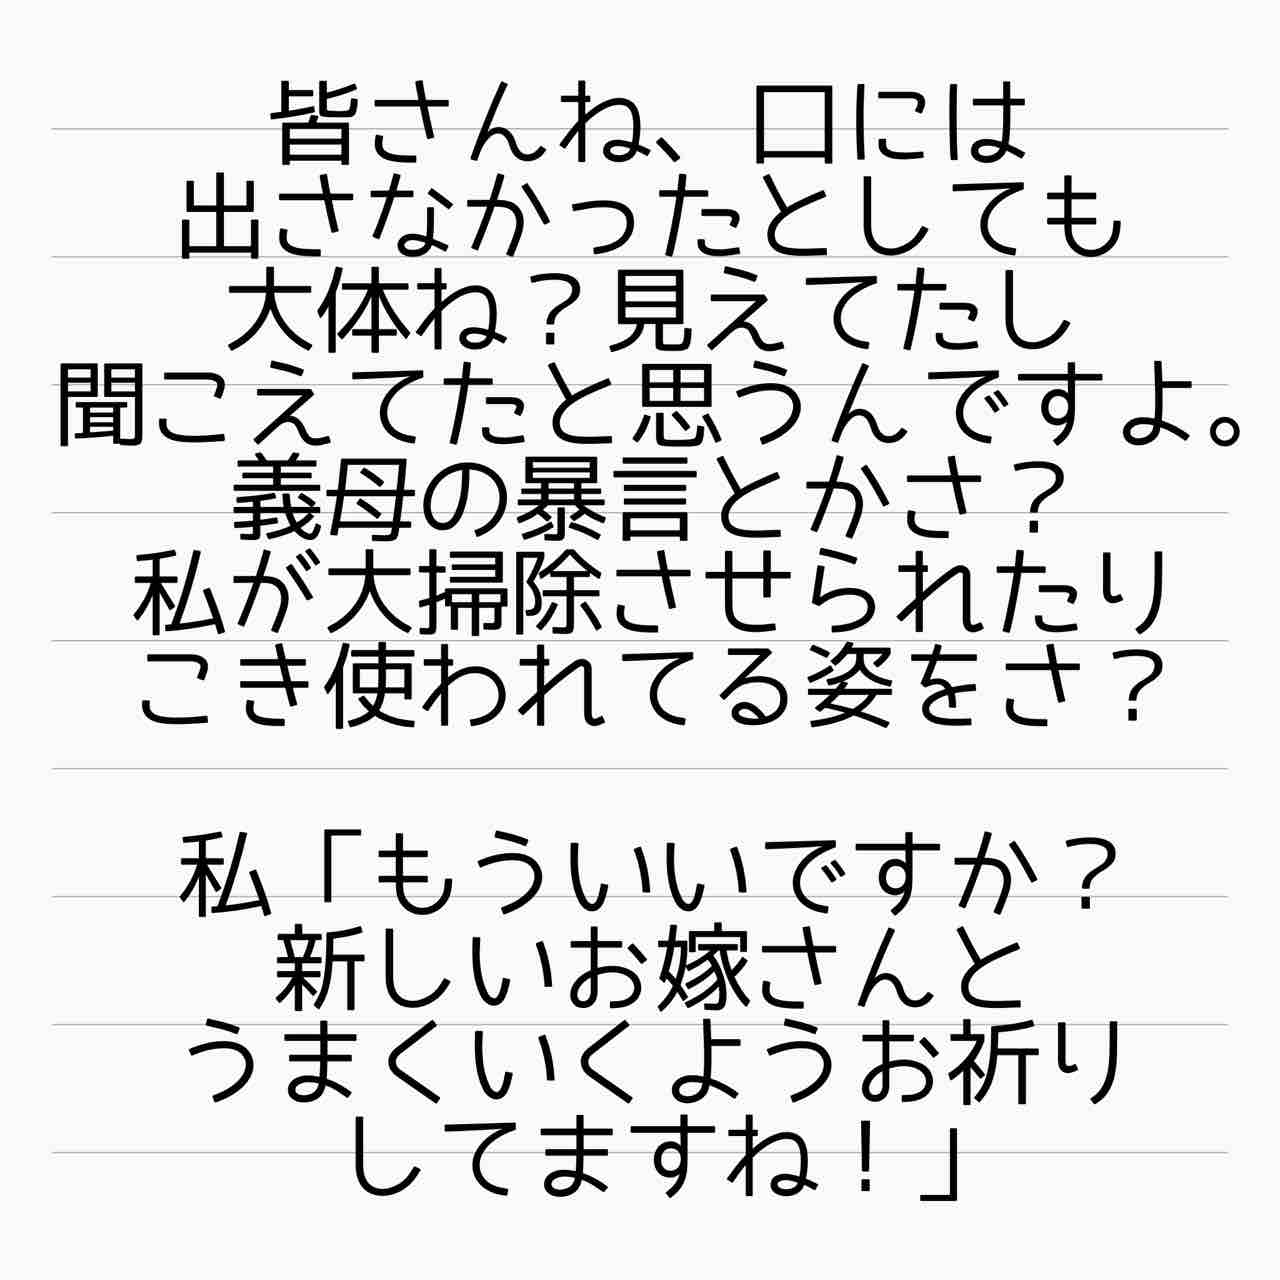 皆さんね、口には
出さなかったとしても
大体ね？見えてたし
聞こえてたと思うんですよ。
義母の暴言とかさ？
私が大掃除させられたり
こき使われてる姿をさ？
私「もういいですか？
新しいお嫁さんと
うまくいくようお祈り
してますね！」